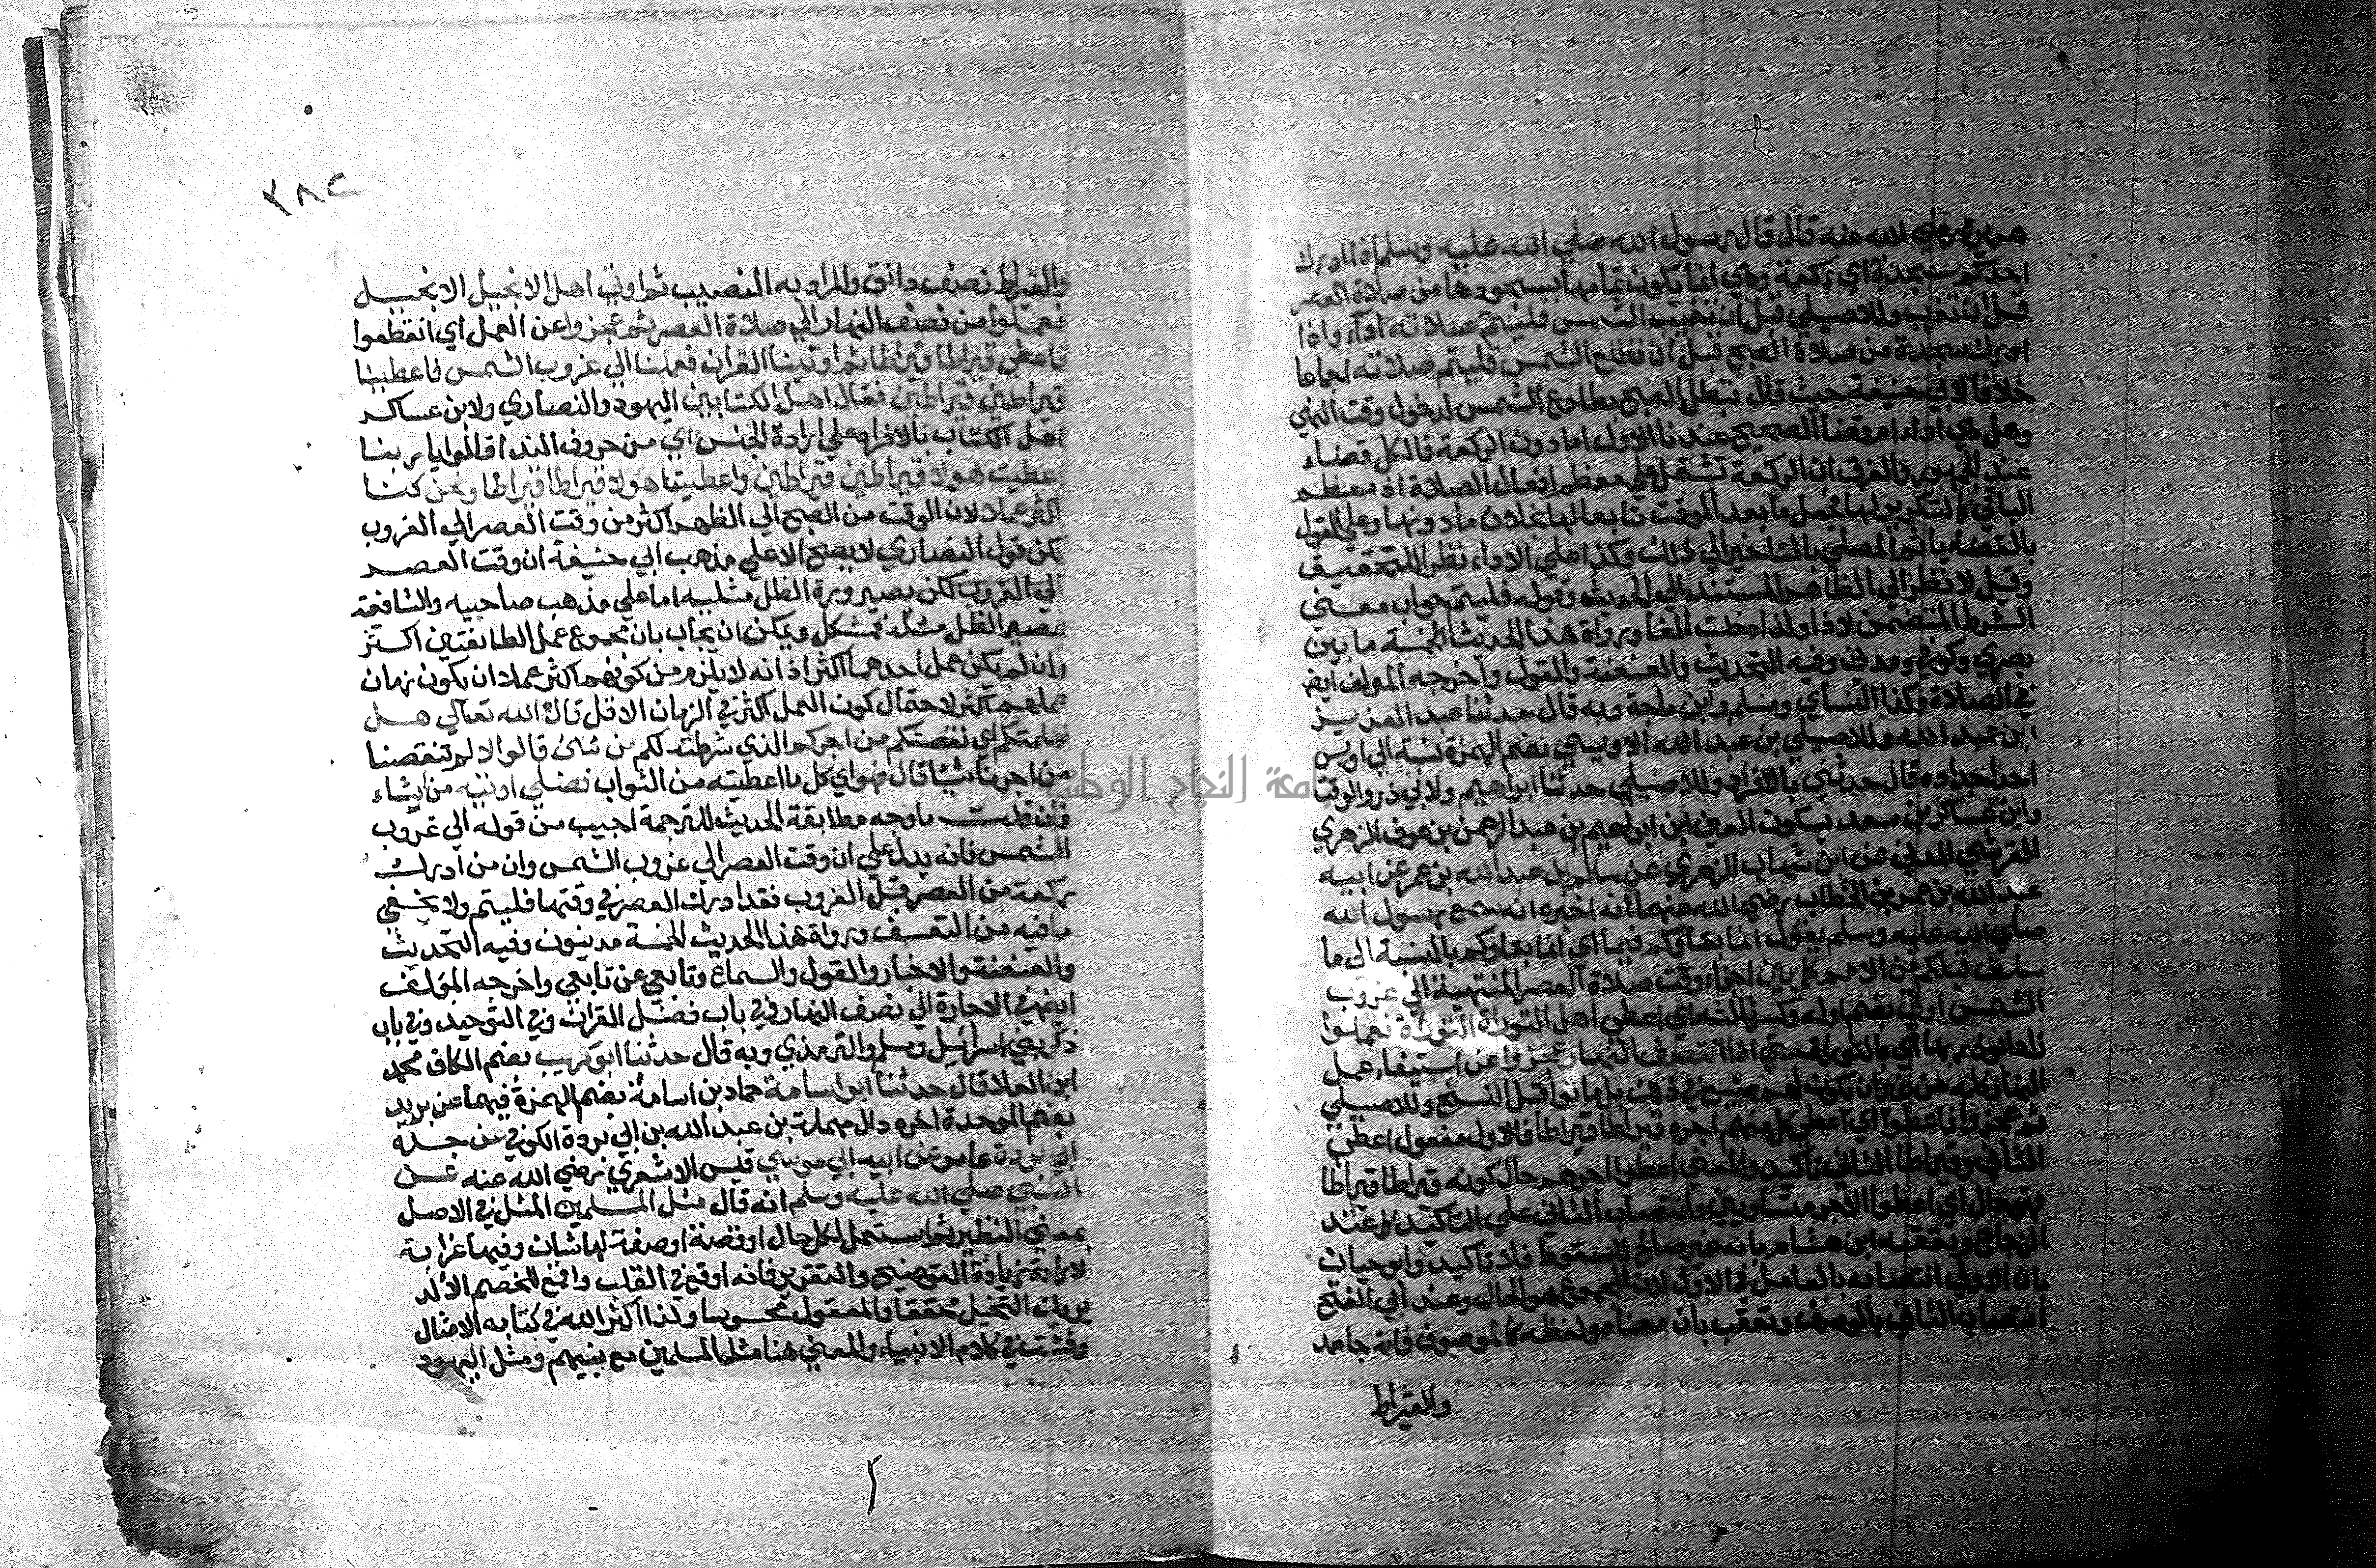 هريرة رضي الله عنه قال قال رسول الله صلي الله عليه وسلم اذا ادرك
احدكم سجدة اي ركعة وهي انما يكون تمامها بسجودها من صلاة العصر
قبل ان تغرب وللاصيلي قبل ان تغيب الشمس فليتم صلاته اداء واذا
ادرك سجدة من صلاة الصبح قبل ان تطلع الشمس فليتم صلاته اجماعا
خلافا لابي حنيفة حيث قال تبطل الصبح بطلوع الشمس لدخول وقت النهي
وهل هي اداء ام قضا الصحيح عندنا الاول اما دون الركعة فالكل قضاء
عند الجمهور والفرق ان الركعة تشتمل علي معظم افعال الصلاة اذ معظم
الباقي كالتكرير لها فجعل ما بعد الوقت تابعا لها بخلاف ما دونها وعلي القول
بالقضاء ياثم المصلي بالتاخير الي ذلك وكذا علي الاداء نظرا للتحقيق
وقيل لا نظرا الي الظاهر المستند الي الحديث وقوله فليتم جواب معني
الشرط المتضمن لاذا ولذا دخلت الفا ورواة هذا الحديث الخمسة ما بين
بصري وكوفي ومدني وفيه التحديث والعنعنة والقول واخرجه المولف ايضا
في الصلاة وكذا النساي ومسلم وابن ماجة وبه قال حدثنا عبد العزيز
ابن عبد الله وللاصيلي بن عبد الله الاويسي بضم الهمزة نسبة الي اويس
احد اجداده قال حدثني بالافراد وللاصيلي حدثنا ابراهيم ولابي ذر والوقت
وابن عساكر بن سعد بسكون العين ابن ابراهيم بن عبد الرحمن بن عوف الزهري
القرشي المدني عن ابن شهاب الزهري عن سالم بن عبد الله بن عمر عن ابيه
عبد الله بن عمر بن الخطاب رضي الله عنهما انه اخبره انه سمع رسول الله
صلي الله عليه وسلم يقول انما بقاوكم فيما اي انما بقاوكم بالنسبة الي ما
سلف قبلكم من الامم كما بين اجزاء وقت صلاة العصر المنتهية الي غروب
الشمس اوتي بضم اوله وكسر ثالثه اي اعطي اهل التوراة التوراة فعملوا
بها اي بالتوراة حتي اذا انتصف النهار عجزوا عن استيفاء عمل
النهار كله من غير ان يكون لهم صنيع في ذلك بل ماتوا قبل النسخ وللاصيلي
ثم عجزوا فاعطوا اي اعطي كل منهم اجره قيراطا قيراطا فالاول مفعول اعطي
الثاني وقيراطا الثاني تاكيد والمعني اعطوا اجرهم حال كونه قيراطا قيراطا
فهو حال اي اعطوا الاجر متساويين وانتصاب الثاني علي التاكيد عند
الزجاج وتعقبه ابن هشام بانه غير صالح للسقوط فلا تاكيد وابو حيان
بان الاولي انتصابه بالعامل في الاول لان المجموع هو الحال وعند ابي الفتح
انتصاب الثاني بالوصف وتعقب بان معناه ولفظه كالموصوف فانه جامد
والقيراط
٢٨٢
والقيراط نصف دانق والمراد به النصيب ثم اوتي اهل الانجيل الانجيل
فعملوا من نصف النهار الي صلاة العصر ثم عجزوا عن العمل اي انقطعوا
فاعطي قيراطا قيراطا ثم اوتينا القران فعملنا الي غروب الشمس فاعطينا
قيراطين قيراطين فقال اهل الكتابين اليهود والنصاري ولابن عساكر
اهل الكتاب بالافراد علي ارادة الجنس اي من حروف الندا قالوا يا ربنا
اعطيت هولا قيراطين قيراطين واعطيتنا هولا قيراطا قيراطا ونحن كنا
اكثر عملا لان الوقت من الصبح الي الظهر اكثر من وقت العصر الي الغروب
لكن قول النصاري لا يصح الا علي مذهب ابي حنيفة ان وقت العصر
الي الغروب لكن بصيرورة الظل مثليه اما علي مذهب صاحبيه والشافعية
بمصير الظل مثله فمشكل ويمكن ان يجاب بان مجموع عمل الطايفتين اكثر
وان لم يكن عمل احدهما اكثر اذ انه لا يلزم من كونهم اكثر عملا ان يكون زمان
عملهم اكثر لاحتمال كون العمل اكثر في الزمان الاقل قال الله تعالي هل
ظلمتكم اي نقصتكم من اجركم الذي شرطته لكم من شئ قالوا لا لم تنقصنا
من اجرنا شيئا قال فهو اي كل ما اعطيته من الثواب فضلي اوتيه من اشاء
فان قلت ما وجه مطابقة الحديث للترجمة اجيب من قوله الي غروب
الشمس فانه يدل علي ان وقت العصر الي غروب الشمس وان من ادرك
ركعة من العصر قبل الغروب فقد ادرك العصر في وقتها فليتم ولا يخفي
ما فيه من التعسف ورواة هذا الحديث الخمسة مدنيون وفيه التحديث
والعنعنة والاخبار والقول والسماع وتابعي عن تابعي واخرجه المؤلف
ايضا في الاجارة الي نصف النهار وفي باب فضل القران وفي التوحيد وفي باب
ذكر بني اسرائيل ومسلم والترمذي وبه قال حدثنا ابو كريب بضم الكاف محمد
ابن العلا قال حدثنا ابو اسامة حماد بن اسامة بضم الهمزة فيهما عن بريد
بضم الموحدة اخره دال مهملة بن عبد الله بن ابي بردة الكوفي عن جده
ابي بردة عامر عن ابيه ابي موسي قيس الاشعري رضي الله عنه عن
النبي صلي الله عليه وسلم انه قال مثل المسلمين المثل في الاصل
بمعني النظير ثم استعمل لكل حال او قصة او صفة لها شان وفيها غرابة
لارادة زيادة التوضيح والتقرير فانه اوقع في القلب واقمع للخصم الالد
يريك التخيل محققا والمعقول محسوسا ولذا اكثر الله في كتابه الامثال
وفشت في كلام الانبياء والمعني هنا مثل المسلمين مع نبيهم ومثل اليهود